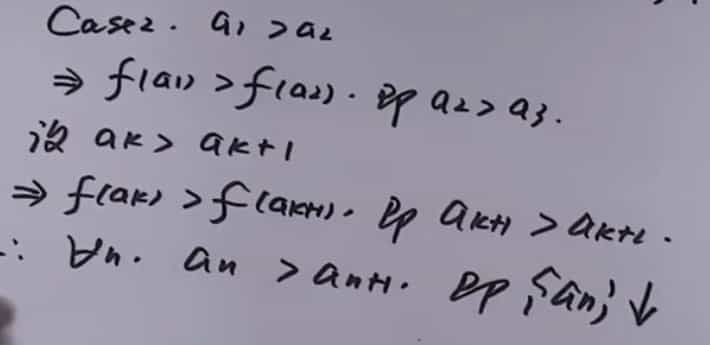 Case2. a₁ > a₂
⇒ f(a₁) > f(a₂). 即 a₂ > a₃.
设 aₖ > aₖ₊₁
⇒ f(aₖ) > f(aₖ₊₁). 即 aₖ₊₁ > aₖ₊₂.
∴ ∀n. aₙ > aₙ₊₁. 即 {aₙ} ↓